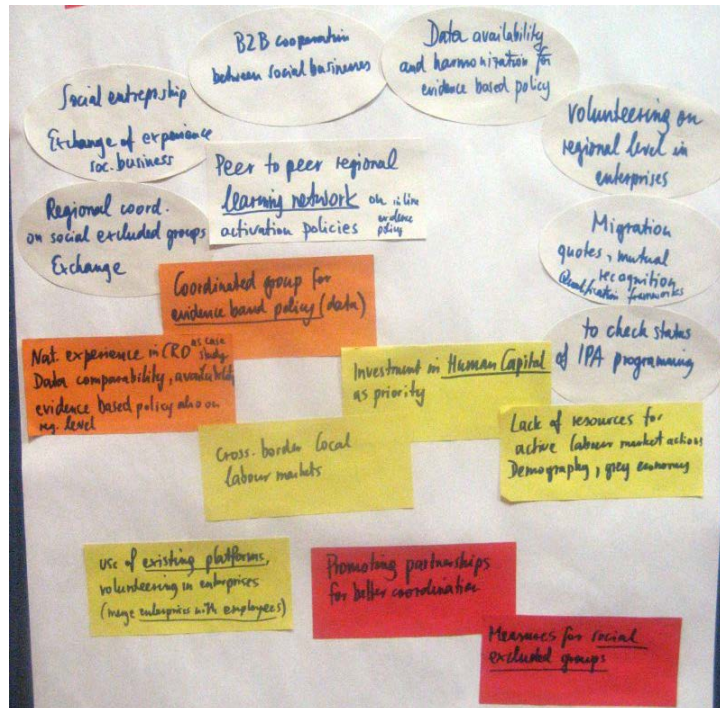 B2B cooperation
between social businesses
Data availability
and harmonization for
evidence based policy
Social entrepship
Exchange of experience
soc. business
volunteering on
regional level in
enterprises
Peer to peer regional
learning network on inline
activation policies evidence
policy
Regional coord.
on social excluded groups
Exchange
Migration
quotes, mutual
recognition
Qualification frameworks
Coordinated group for
evidence band policy (data)
to check status
of IPA programing
Nat. experience in CRO as case
study
Data comparability, availability
evidence based policy also on
reg. level
Investment in Human Capital
as priority
Cross-border local
labour markets
Lack of resources for
active labour market actions
Demography, grey economy
use of existing platforms,
volunteering in enterprises
(merge enterprises with employees)
Promoting partnerships
for better coordination
Measures for social
excluded groups